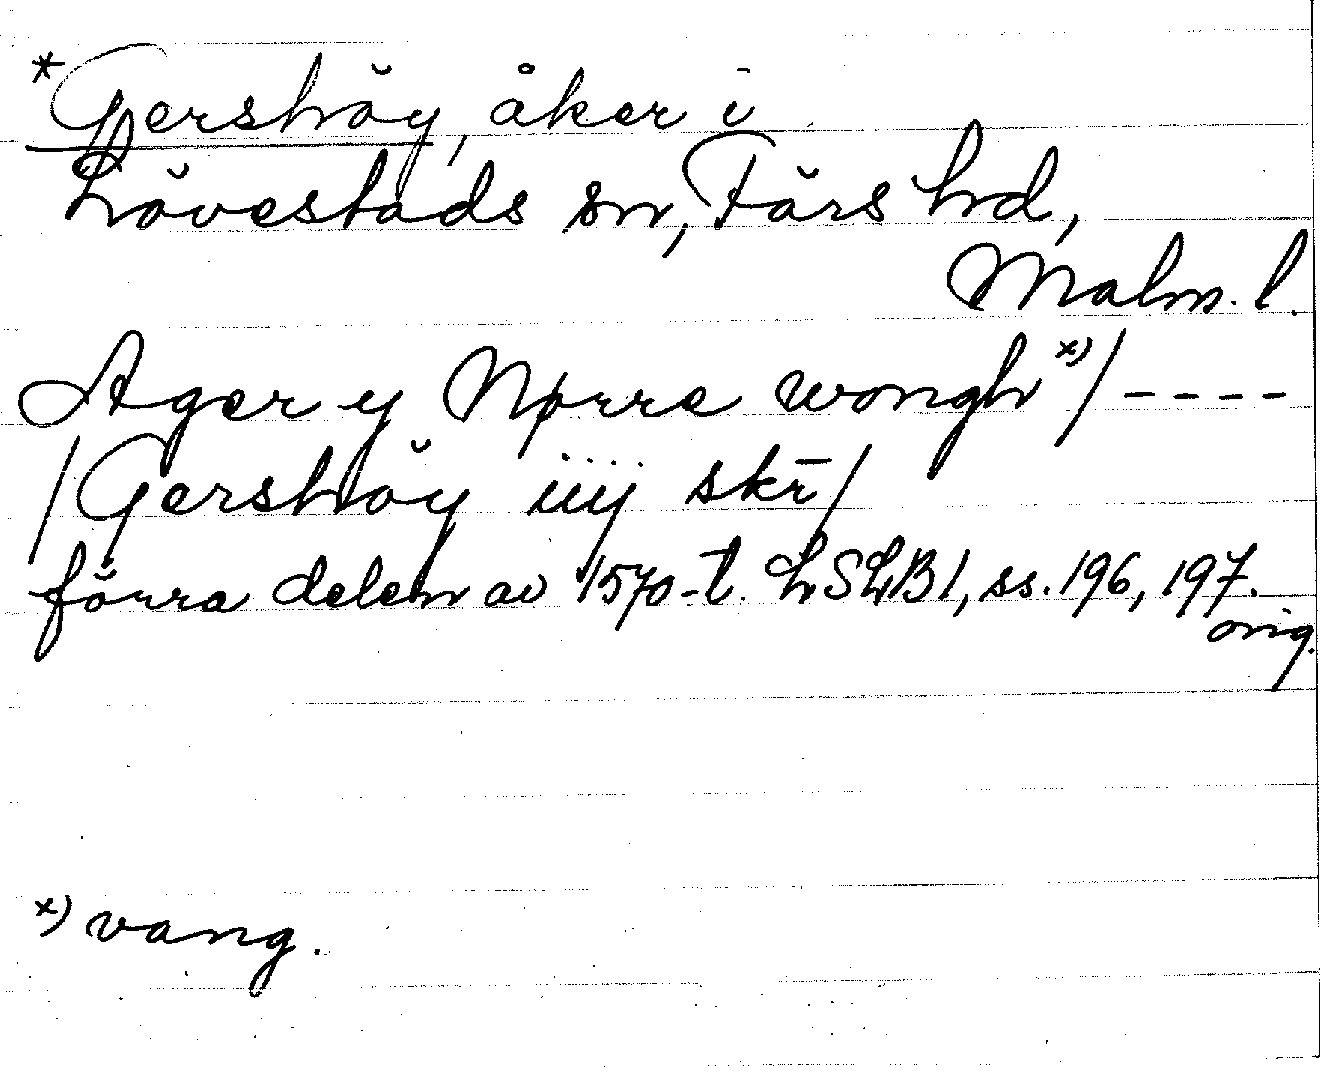 *Gershöy, åker i
Lövestads sn, Färs hd,
Malm. l.
Ager y Nørre wongh x) / - - - -
/ Gershöy iiij skr̄ /
förra delen av 1570-t. LSLB I, ss. 196, 197.
orig.
x) vang.